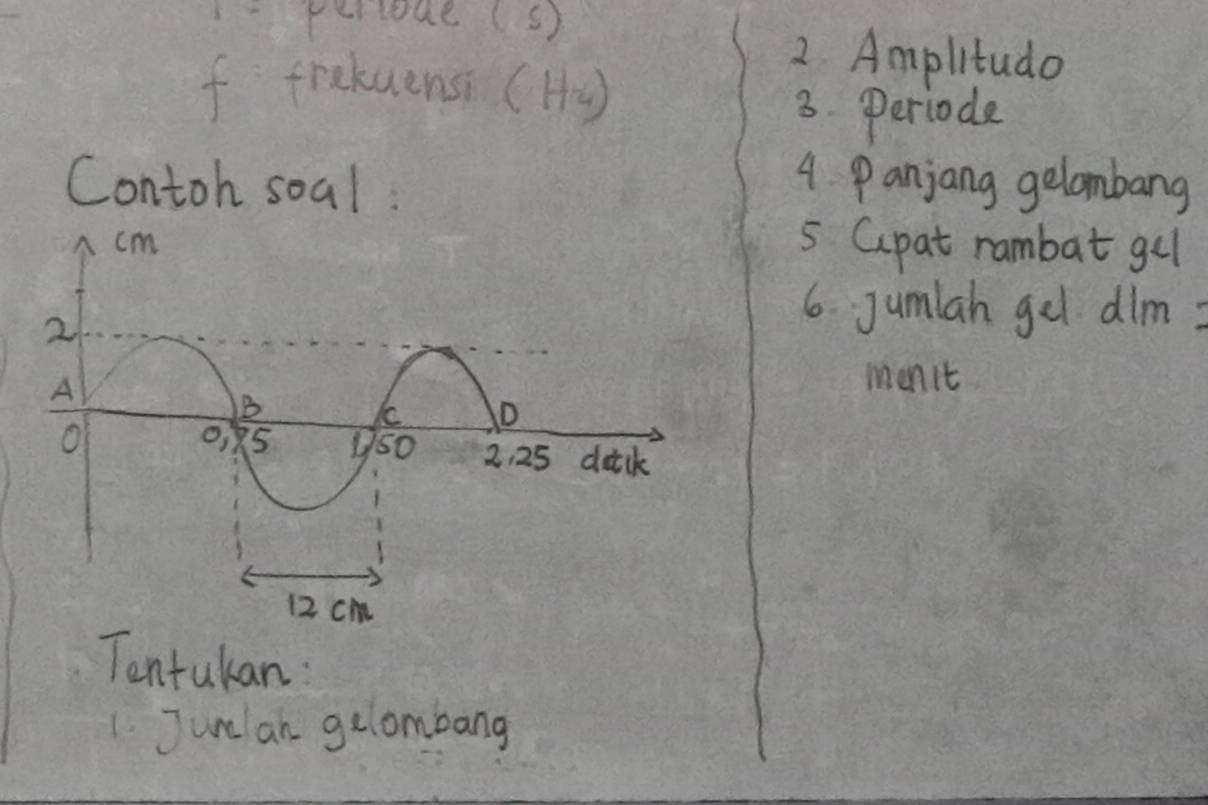 periode (s)
f = frekuensi (Hz)
Contoh soal :
cm
2
A
B
C
D
0
0,75
1,50
2,25 detik
12 cm
Tentukan :
1. Jumlah gelombang
2. Amplitudo
3. Periode
4. Panjang gelombang
5. Cepat rambat gel
6. Jumlah gel. dlm
menit